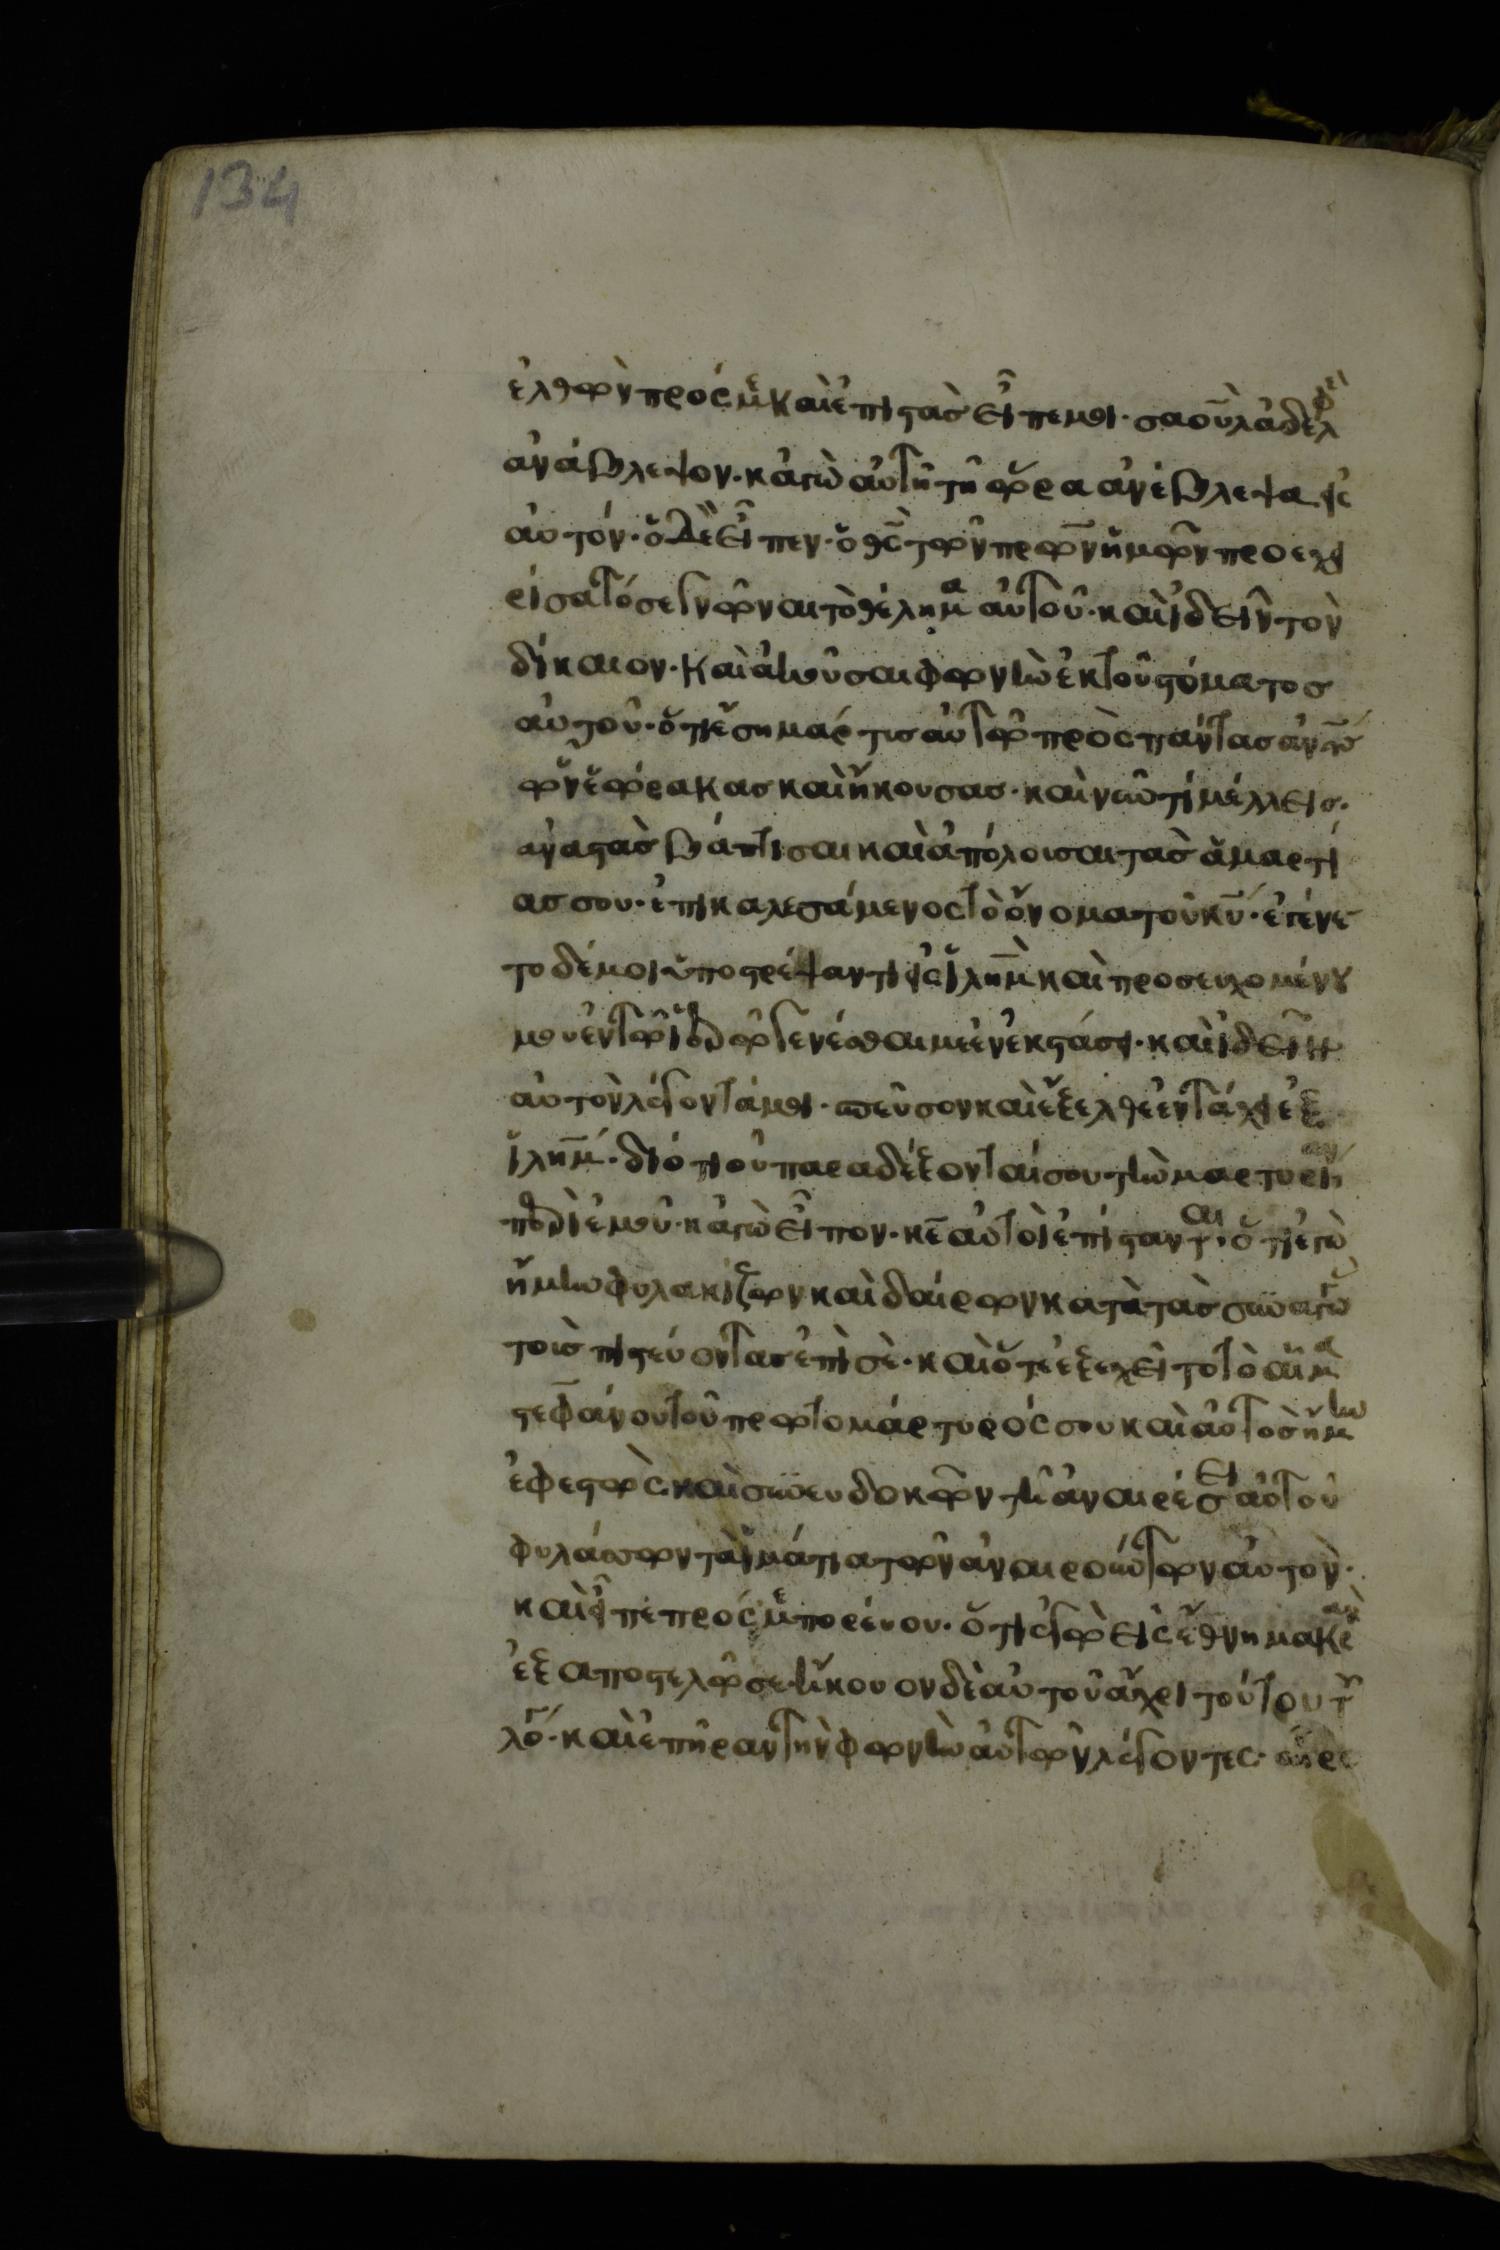 134
ἐλθὼν πρός με καὶ ἐπιστὰσ εἶπε μοι· σαοὺλ ἀδελφέ
ἀνάβλεψον· κἀγὼ αὐτῆ τῆ ὥρα ἀνέβλεψα εἰς
αὐτόν· ὁ δὲ εἶπεν· ὁ θς τῶν πρων ἡμῶν προεχει
ρίσατό σε γνῶναι τὸ θέλημα αὐτοῦ· καὶ ἰδεῖν τὸν
δίκαιον· καὶ ἀκοῦσαι φωνὴν ἐκ τοῦ στόματοσ
αὐτοῦ· ὅτι ἔση μάρτισ αὐτῶ πρὸς πάντασ ἀνουσ
ὧν ἑώρακασ καὶ ἤκουσασ· καὶ νῦν τί μέλλεισ·
ἀναστὰσ βάπτισαι καὶ ἀπόλουσαι τὰσ ἁμαρτί
ασ σου· ἐπικαλεσάμενος τὸ ὄνομα τοῦ κυ· ἐγένε
το δέ μοι ὑποστρέψαντι εἰς ιλημ καὶ προσευχομένου
μου ἐν τῶ ἱερῶ γενέσθαι με ἐν ἐκστάσει· καὶ ἰδεῖν
αὐτὸν λέγοντά μοι· σπεῦσον καὶ ἔξελθε ἐν τάχει ἐξ
ιλημ· διότι οὐ παραδέξονταί σου τὴν μαρτυρίαν
περὶ ἐμοῦ· κἀγὼ εἶπον· κε αὐτοὶ ἐπίστανται· ὅτι ἐγὼ
ἤμην φυλακίζων καὶ δαίρων κατὰ τὰσ συναγωγὰσ
τοὺσ πιστεύοντασ ἐπὶ σὲ· καὶ ὅτε ἐξεχεῖτο τὸ αἷμα
στεφάνου τοῦ πρωτομάρτυρός σου καὶ αὐτὸσ ἤμην
ἐφεστὼς καὶ συνευδοκῶν τῆ ἀναιρέσει αὐτοῦ
φυλάσσων τὰ ἱμάτια τῶν ἀναιρούντων αὐτὸν·
καὶ εἶπε πρός με πορεύου· ὅτι ἐγὼ εἰς ἔθνη μακρὰν
ἐξαποστελῶ σε· ἤκουον δὲ αὐτοῦ ἄχρι τούτου τοῦ
λόγου· καὶ ἐπῆραν τὴν φωνὴν αὐτῶν λέγοντες· αἶρε